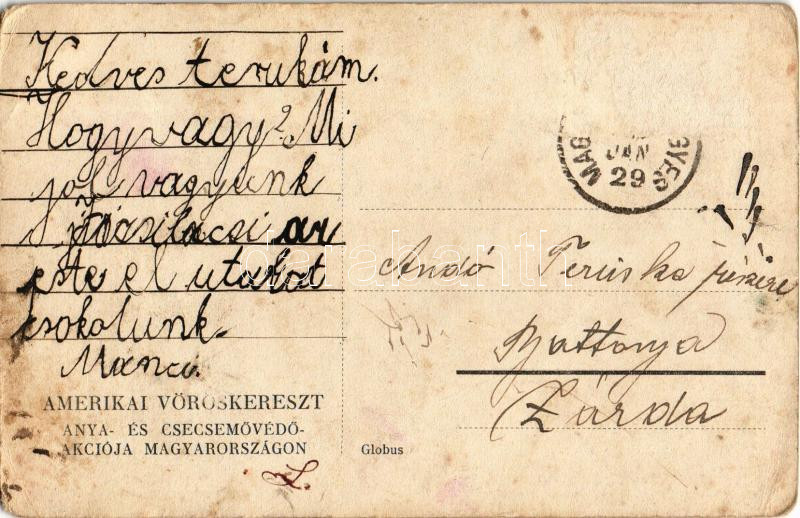 Kedves terukám.
Hogy vagy? Mi
jól vagyunk
Józsi lacsi ar
este el utazot
csokolunk.
Manci.
AMERIKAI VÖRÖSKERESZT
ANYA- ÉS CSECSEMŐVÉDŐ-
AKCIÓJA MAGYARORSZÁGON
L.
Globus
MAG GYEG
JAN
29
Andó Teruska részére
Battonya
Zárda
darabanth